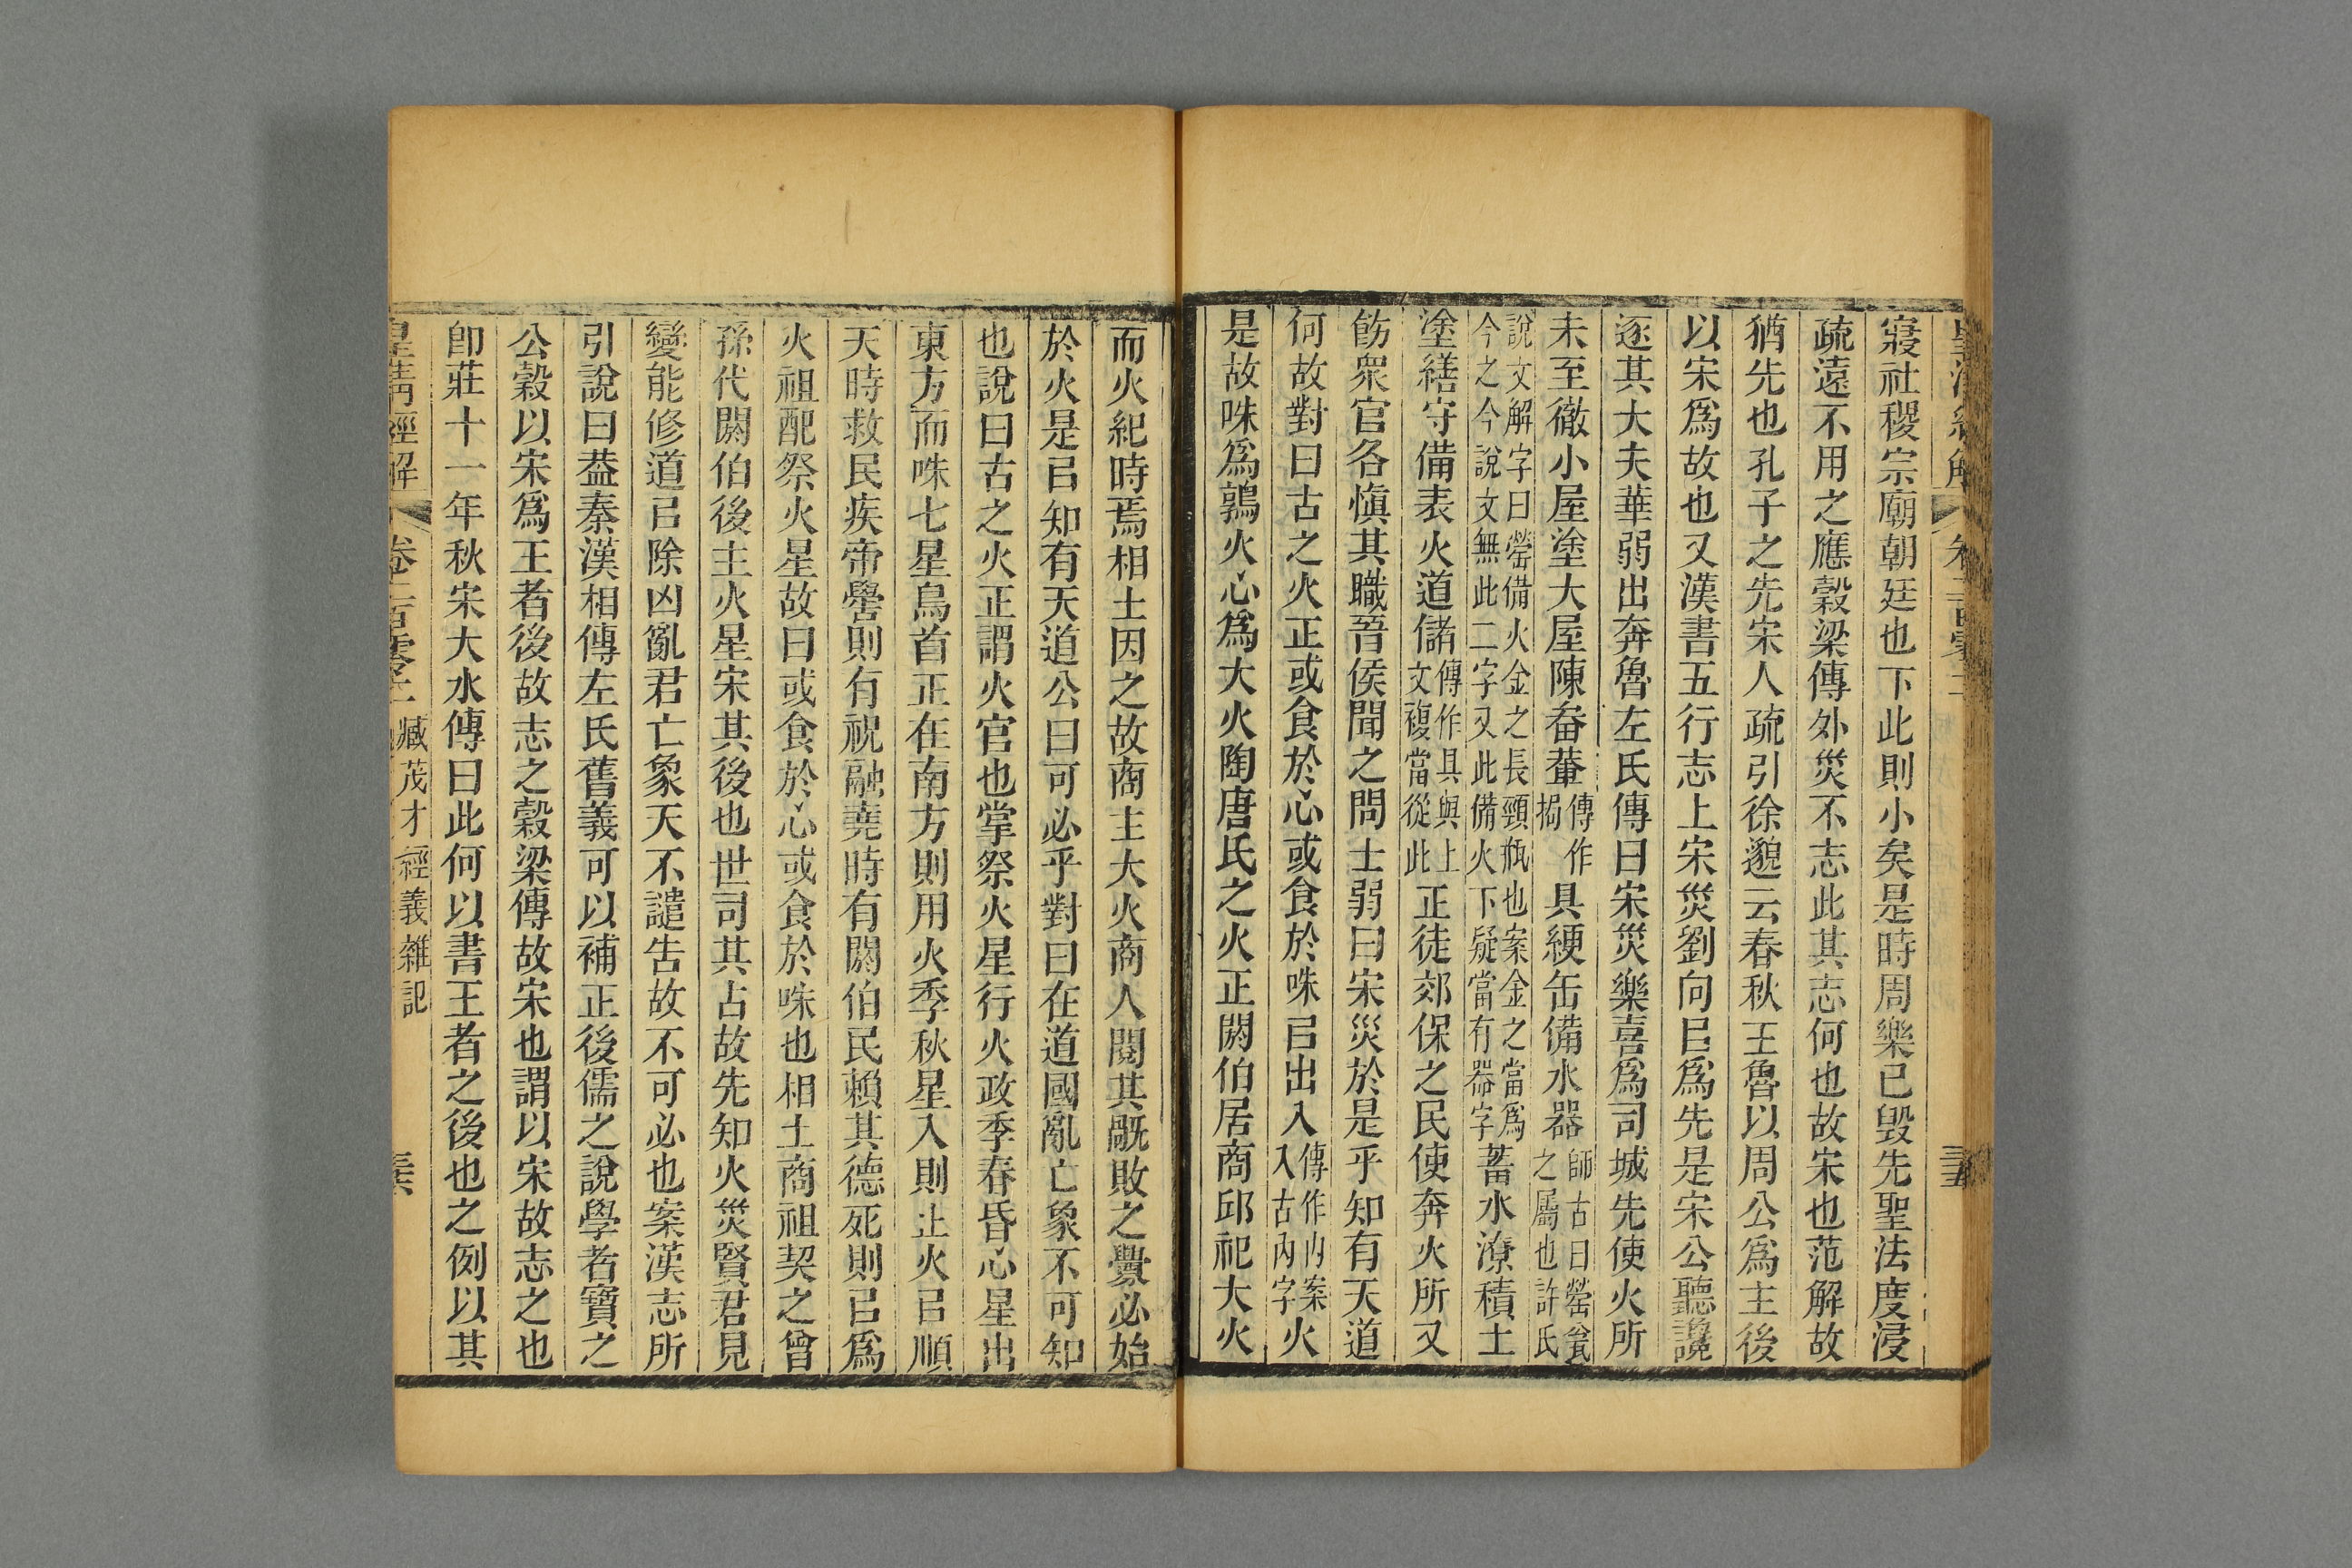 皇清經解 卷二百零二 三五
寢社稷宗廟朝廷也下此則小矣是時周樂已毀先聖法度浸
疏遠不用之應穀梁傳外災不志此其志何也故宋也范解故
猶先也孔子之先宋人疏引徐邈云春秋王魯以周公爲主後
以宋爲故也又漢書五行志上宋災劉向㠯爲先是宋公聽讒
逐其大夫華弱出奔魯左氏傳曰宋災樂喜爲司城先使火所
未至徹小屋塗大屋陳畚輂傳作挶具綆缶備水器師古曰罃瓮之屬也許氏
說文解字曰罃備火金之長頸瓶也案金之當爲今之今說文無此二字又此備火下疑當有器字蓄水潦積土
塗繕守備表火道儲傳作具與上文複當從此正徒郊保之民使奔火所又
飭衆官各愼其職晉侯聞之問士弱曰宋災於是乎知有天道
何故對曰古之火正或食於心或食於咮㠯出入傳作內案入古內字火
是故咮爲鶉火心爲大火陶唐氏之火正閼伯居商邱祀大火
而火紀時焉相土因之故商主大火商人閱其䣺敗之釁必始
於火是㠯知有天道公曰可必乎對曰在道國亂亡象不可知
也說曰古之火正謂火官也掌祭火星行火政季春昏心星出
東方而咮七星鳥首正在南方則用火季秋星入則止火㠯順
天時救民疾帝嚳則有祝融堯時有閼伯民賴其德死則㠯爲
火祖配祭火星故曰或食於心或食於咮也相土商祖契之曾
孫代閼伯後主火星宋其後也世司其占故先知火災賢君見
變能修道㠯除凶亂君亡象天不譴告故不可必也案漢志所
引說曰葢秦漢相傳左氏舊義可以補正後儒之說學者寶之
公穀以宋爲王者後故志之穀梁傳故宋也謂以宋故志之也
卽莊十一年秋宋大水傳曰此何以書王者之後也之例以其
皇清經解 卷二百零二 臧茂才經義雜記 三六